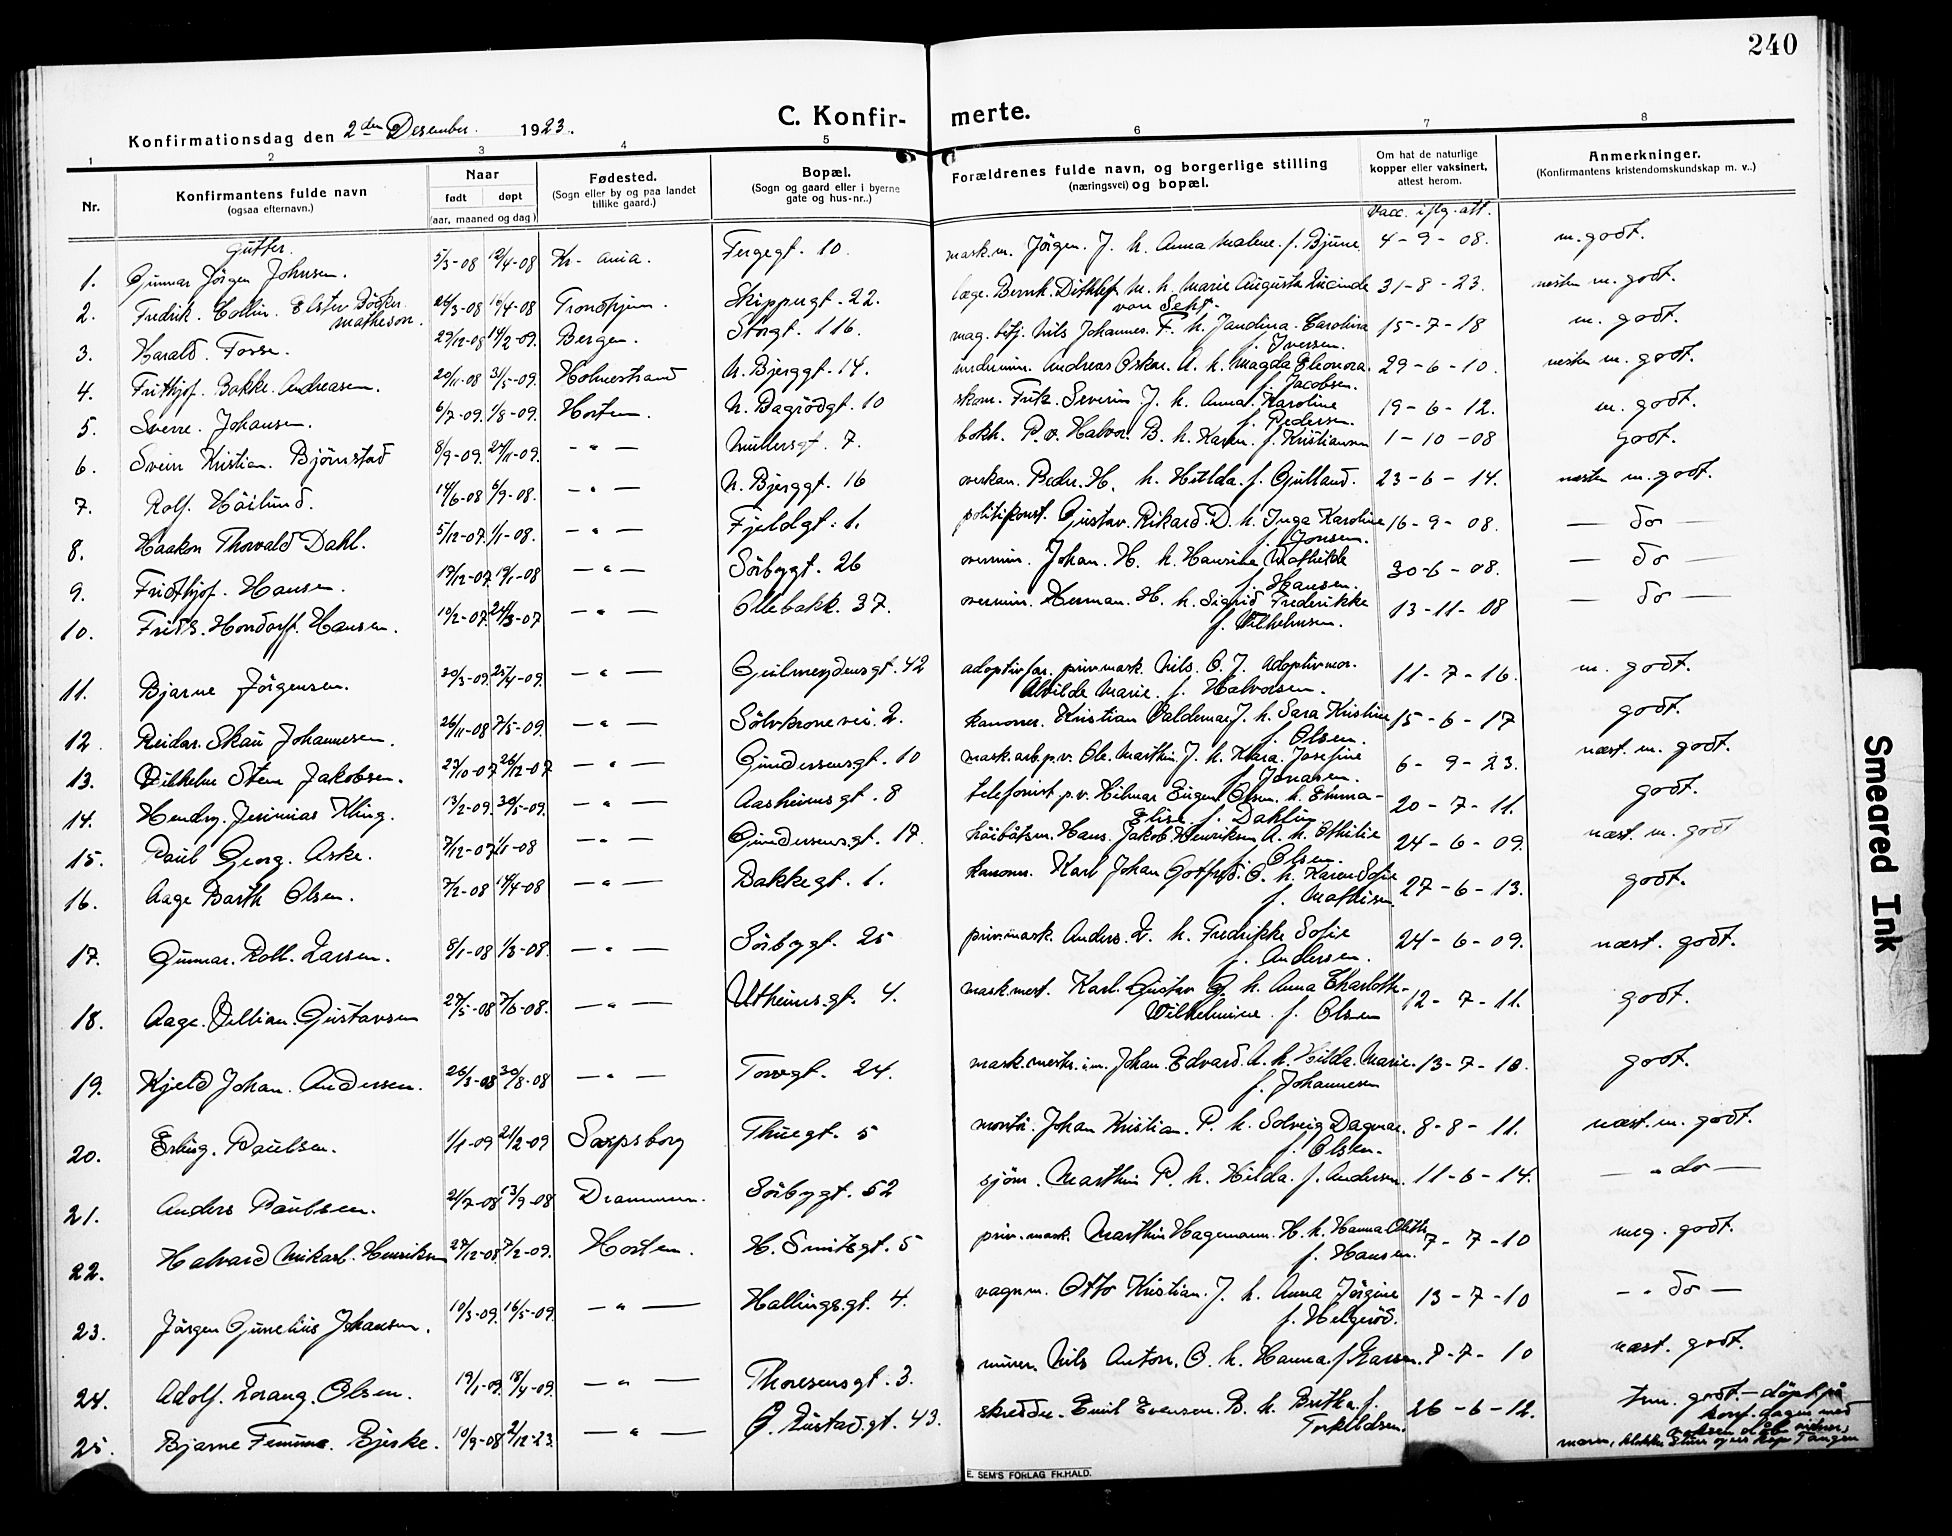 240
C. Konfir- merte.
Konfirmationsdag den 2den Desember. 1923.
1 2 3 4 5 6 7 8
Nr.
Konfirmantens fulde navn
(ogsaa efternavn.)
Naar
født døpt
(aar, maaned og dag)
Fødested.
(Sogn eller by og paa landet
tillike gaard.)
Bopæl.
(Sogn og gaard eller i byerne
gate og hus-nr..)
Forældrenes fulde navn, og borgerlige stilling
(næringsvei) og bopæl.
Om hat de naturlige
kopper eller vaksinert,
attest herom.
Anmerkninger.
(Konfirmantens kristendomskundskap m. v.)
Vacc. iflg. att.
Gutter.
1. Gunnar Jörgen Johnsen. 5/3-08 12/4-08 Kr-ania. Fergegt. 10 mask.m. Jörgen. J. h. Anna Malene. f. Bjune 4-9-08. m. godt.
2. Fredrik. Collin. Elster Bödker 26/3-08 Trondhjem. Skippergt. 22. læge. Bernh. Dithlef M. h. Marie Augusta Lucinde 31-8-23. nesten m. godt.
Matheson. von Seht.
3. Harald. Fosse. 29/12-08 14/2-09. Bergen. Storgt. 116. mag. betj. Nils Johannes. F. h. Jandina. Carolina 15-7-18 m. godt.
f. Iversen.
4. Frithjof. Bakke. Andreasen. 20/11-08 31/5-09. Holmestrand N. Bjerggt. 14. underminr. Andreas Oskar. A. h. Magda Eleonora. 29-6-10. nesten m. godt.
f. Jacobsen.
5. Sverre. Johansen. 6/7-09. 1/8-09. Horten. N. Bagrödgt. 10 skom. Fritz. Severin J. h. Anna. Karoline 19-6-12. m. godt.
f. Pedersen.
6. Svein Kristian. Björnstad 8/9-09. 24/11-09. - " - Müllersgt. 7. bokh. P.v. Halvor. B. h. Karen. f. Kristiansen 1-10-08 godt.
7. Rolf. Höilund. 14/6-08 6/9-08. - " - N. Bjerggt. 16 overkan. Peder. H. h. Hilda. f. Gulland. 23-6-14. nesten m. godt.
8. Haakon Thorvald Dahl. 5/12-07. 1/1-08. - " - Fjeldgt. 1. politikonst. Gustav. Rikard. D. h. Inga Karoline 16-9-08. — do —
f. Jonsen.
9. Fridthjof. Hansen. 17/12-07. 19/1-08 - " - Sörbygt. 26 overmin. Johan. H. h. Hansine Mathilde 30-6-08. — do —
f. Hansen.
10. Fridt. Hondorff. Hansen. 10/2-07. 24/3-07 - " - Ollebakk. 37. overminr. Herman. H. h. Sigrid Frederikke 13-11-08 — do —
f. Vilhelmsen.
11. Bjarne Jörgensen. 30/3-09. 25/4-09. - " - Gyldenløvesgt. 42 adoptivfar. priv.mask. Nils. O. J. adoptivmor. 11-7-16. m. godt.
Alvilde Marie. f. Halvorsen.
12. Reidar. Skau Johannesen. 26/11-08 7/5-09. - " - Sölvkronevei. 2. kanoner. Kristian Valdemar J. h. Sara Kristine 15-6-17 godt.
f. Olsen.
13. Vilhelm Sten Jakobsen. 27/10-07 26/12-07 - " - Gundersensgt. 10 mask.arb.p.v. Ole. Marthin. J. h. Klara. Josefine 6-9-23. næst. m. godt.
f. Jonasen.
14. Hendry. Jerimias Kling. 13/2-09. 30/5-09. - " - Aasheimsgt. 8 telefonist p.v. Hilmar Eugen Olsen. h. Emma- 20-7-11. godt.
Elise f. Dahlin
15. Paul Georg. Aske. 7/12-07 1/1-08 - " - Gundersens.gt. 17. höibåtsm. Hans. Jakob Henriksen A. h. Othilie 24-6-09. næst. m. godt
f. Olsen.
16. Aage Barth Olsen. 7/2-08 14/4-08 - " - Bakkegt. 1. kanoner. Karl Johan Gotfred. O. h. Karen Sofie 27-6-13. godt.
f. Mathisen.
17. Gunnar. Rolf. Larsen. 8/1-08 1/3-08. - " - Sörbygt. 25 priv.mask. Anders. L. h. Fredrikke Sofie 24-6-09. næst. godt.
f. Andersen.
18. Aage. Villian. Gustavsen 27/5-08 7/6-08. - " - Utheims.gt. 4. mask.mest. Karl. Gustav G. h. Anna Charlotte- 12-7-11. godt.
Wilhelmine. f. Olsen
19. Kjeld Johan. Andersen. 26/3-08 30/8-08 - " - Torvgt. 24. mask.mestr. i m. Johan. Edvard. A. h. Hilda. Marie. 13-7-10. godt.
f. Johannesen
20. Erling. Paulsen. 1/1-09 21/2-09 Sarpsborg Thuegt. 5 montör. Johan Kristian. P. h. Solveig Dagmar. 8-8-11. næst. m. godt.
f. Olsen.
21. Anders Paulsen. 21/7-08 13/9-08 Drammen. Sörbygt. 52 sjöm. Marthin P. h. Hilda. f. Andersen. 11-6-14. — " do —
22. Halvard Mikael. Henriksen 27/12-08 7/2-09. Horten. H. Smithsgt. 5 priv.mask. Marthin Hagemann. H. h. Hanna 7-7-10 meg. godt.
f. Hansen.
23. Jörgen Gunelius Johansen. 10/3-09. 16/5-09. - " - Hallings.gt. 4. vagnm. Otto Kristian. J. h. Anna Jörgine 13-7-10 - " do —
f. Helgeröd.
24. Adolf. Lorang. Olsen. 19/1-09. 18/4-09. - " - Thoresensgt. 3. murer. Nils Anton. O. h. Hanna. f. Larsen. 7-7-10 næst. godt.
25. Bjarne Femmer. Bjerke. 10/9-08 2/12-23. - " - O. Rustad.gt. 43. skredder. Emil Evensen. B. h. Bertha f. 26-6-12. godt. - döpt på
Torkildsen. konf. dagen med
E. SEM'S FORLAG FR.HALD.
Smeared Ink